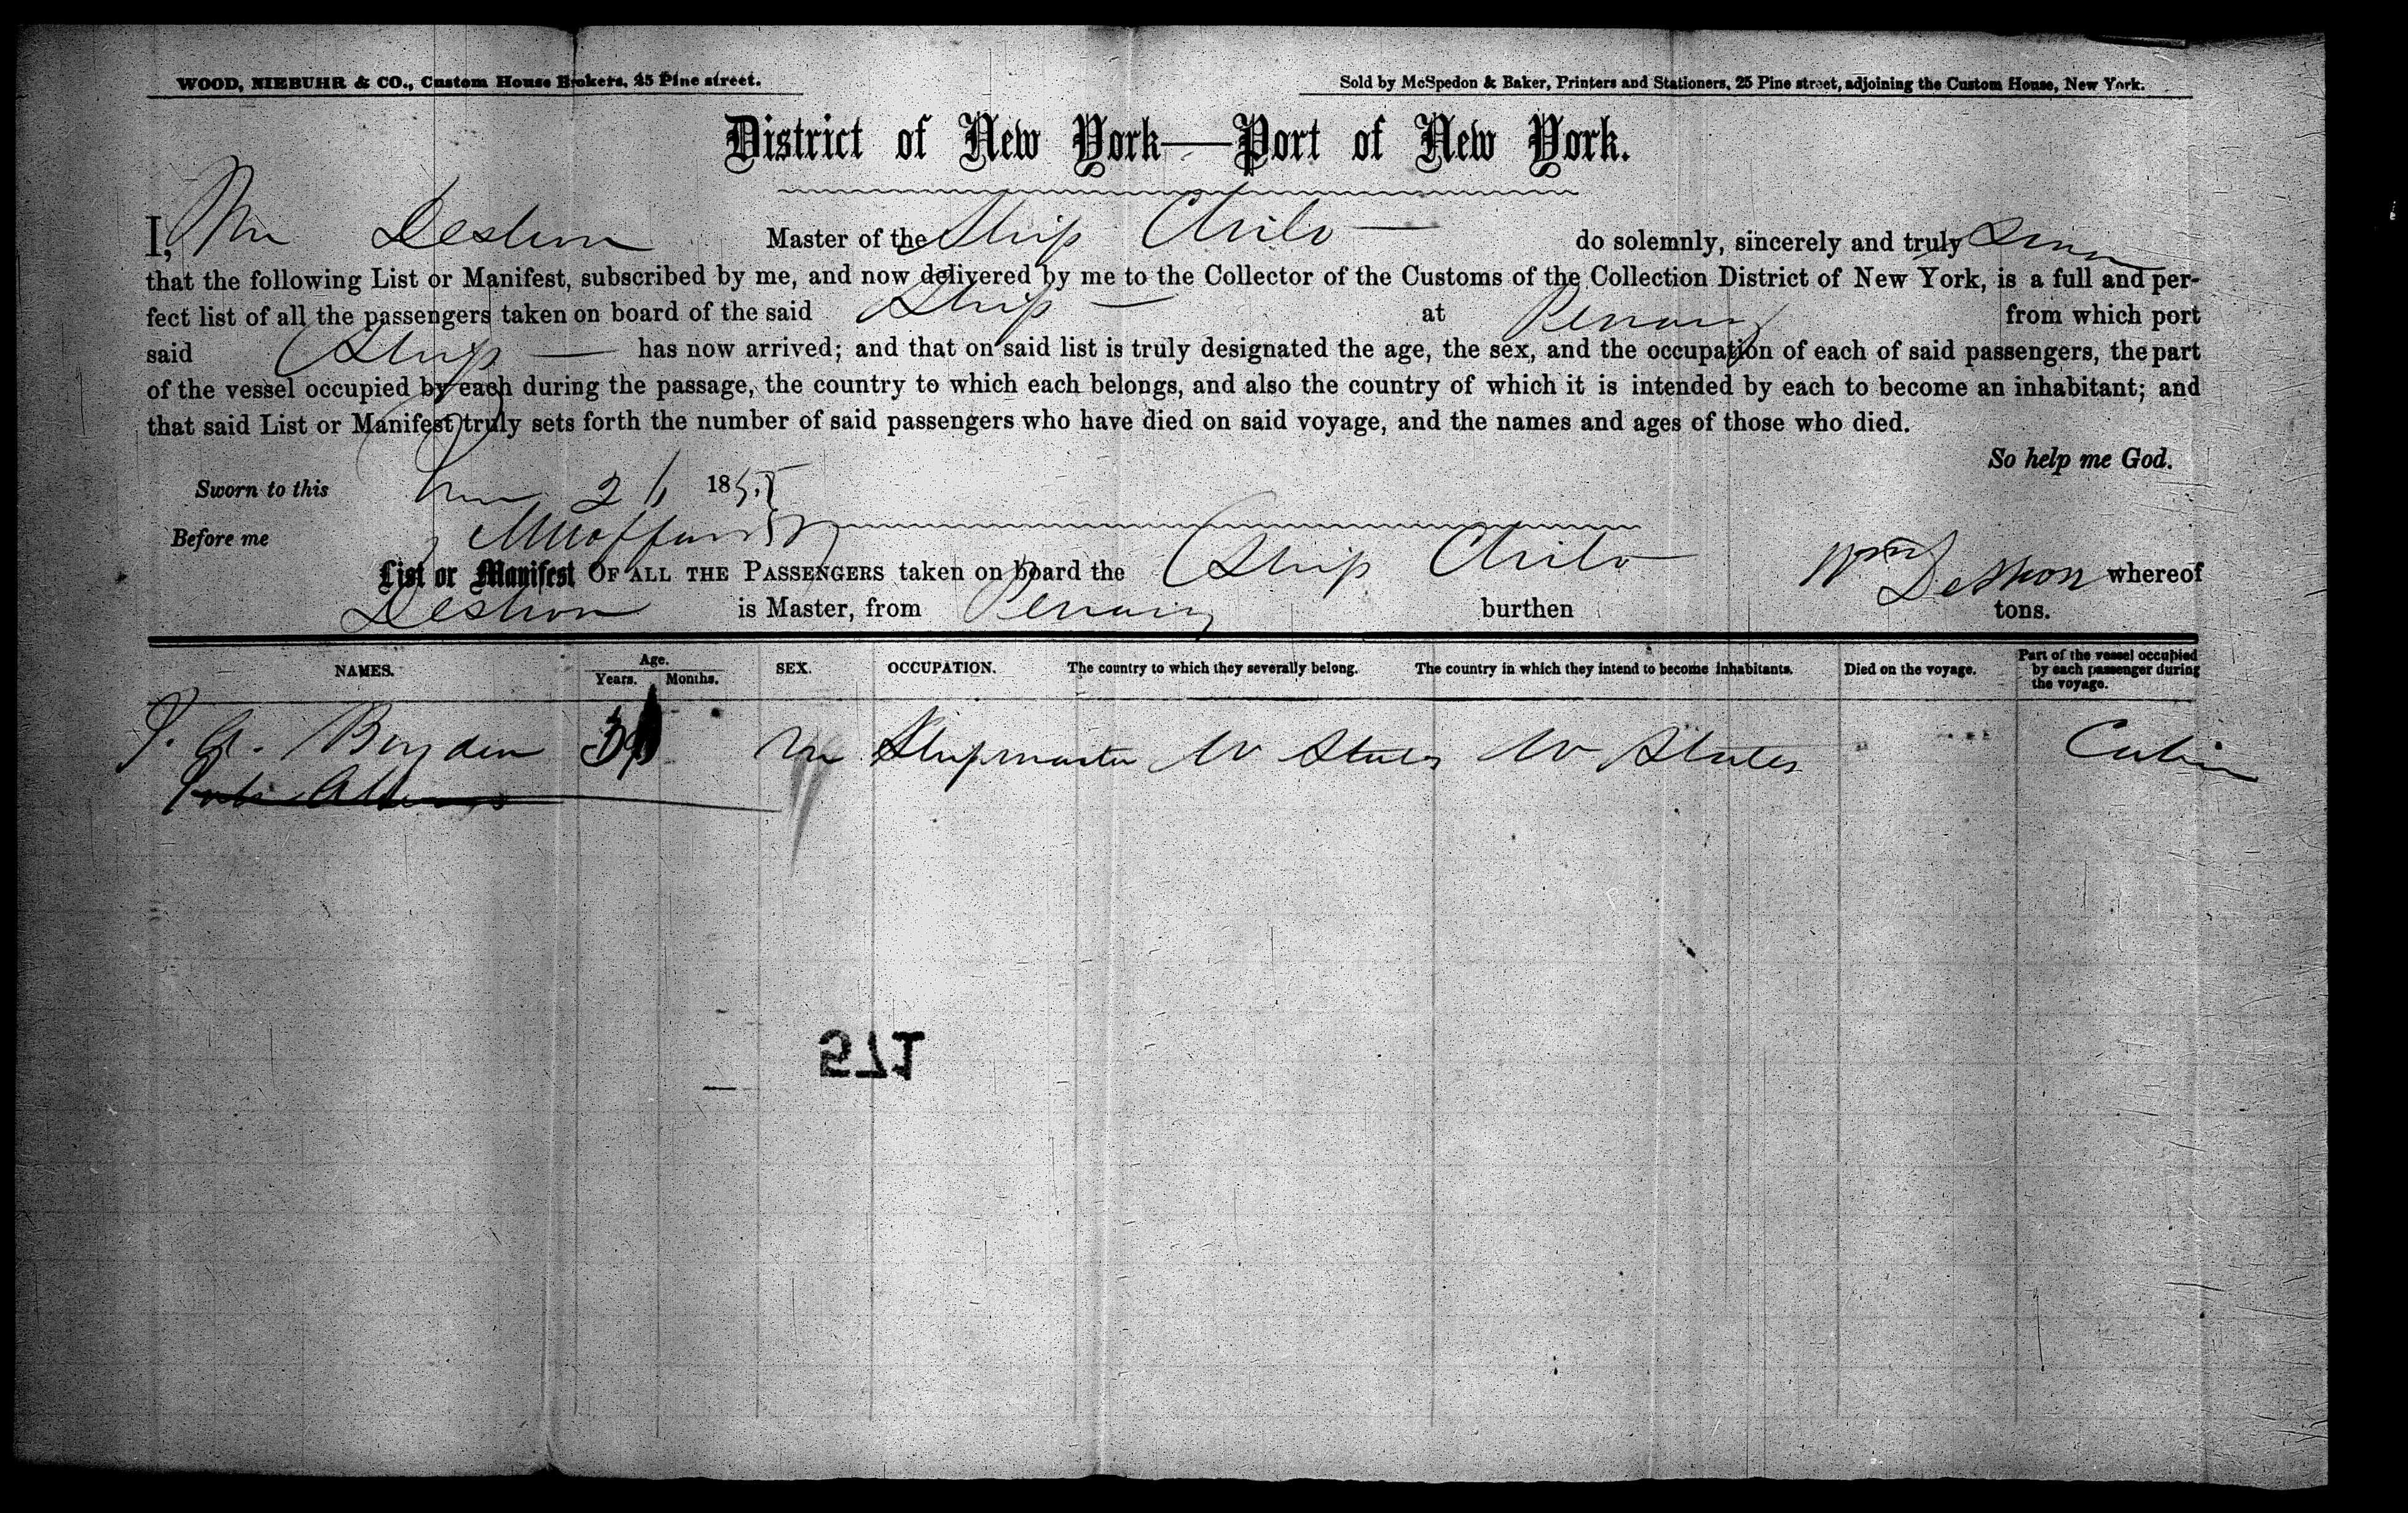 WOOD, NIEBUHR & CO., Custom House Brokers, 25 Pine street.
Sold by McSpedon & Baker, Printers and Stationers, 25 Pine street, adjoining the Custom House, New York.
District of New York—Port of New York.
I, Wm Deshon Master of the Ship Chilo do solemnly, sincerely and truly
that the following List or Manifest, subscribed by me, and now delivered by me to the Collector of the Customs of the Collection District of New York, is a full and per-
fect list of all the passengers taken on board of the said Ship at Penang from which port
said Ship has now arrived; and that on said list is truly designated the age, the sex, and the occupation of each of said passengers, the part
of the vessel occupied by each during the passage, the country to which each belongs, and also the country of which it is intended by each to become an inhabitant; and
that said List or Manifest truly sets forth the number of said passengers who have died on said voyage, and the names and ages of those who died.
So help me God.
Sworn to this 1855
Before me
List or Manifest OF ALL THE PASSENGERS taken on board the Ship Chilo Wm Deshon whereof
Deshon is Master, from Penang burthen tons.
NAMES. Age. Years. Months. SEX. OCCUPATION. The country to which they severally belong. The country in which they intend to become inhabitants. Died on the voyage. Part of the vessel occupied by each passenger during the voyage.
J. A. Boyden 39 M Shipmaster U States U States Cabin
175